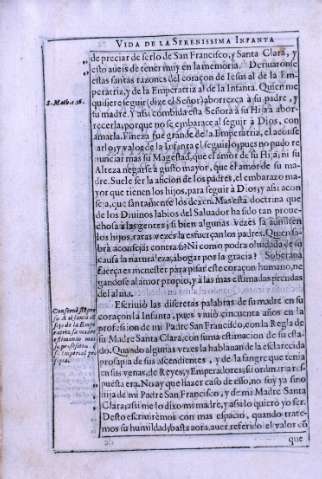 VIDA DE LA SERENISSIMA INFANTA
de preciar de serlo de San Francisco, y Santa Clara, y
esto aueis de tener muy en la memoria. Deriuaronse
estas santas razones del coraçon de Iesus al de la Em-
peratriz, y de la Emperatriz al de la Infanta. Quien me
quisiere seguir (dize el Señor) aborrezca à su padre, y
tu madre. Y assi combida esta Señora à su Hija à abor-
recerla, porque no se embarace al seguir à Dios, con
amarla. Fineza fue grande de la Emperatriz, el aconse-
jarlo, y valor de la Infanta el seguirlo, pues no pudo re-
nunciar mas su Magestad, que el amor de su Hija, ni su
Alteza negarse à gusto mayor, que el amor de su ma-
dre. Suele ser la aficion de los padres, el embarazo ma-
yor que tienen los hijos, para seguir à Dios, y assi acon-
seja, que santamente los dexen. Mas esta doctrina que
de los Diuinos labios del Saluador ha sido tan proue-
chosa à las gentes, si bien algunas vezes la admiten
los hijos, raras vezes la esfuerçan los padres. Quien sa-
brà aconsejar contra si? Ni como podra oluidada de su
causa la naturaleza, abogar por la gracia? Soberana
fuerça es menester para pisar este coraçon humano, ne-
gandose al amor propio, y à las mas estimadas prendas
del alma.
S. Math. c. 10.
Escriuiò las discretas palabras de su madre en su
coraçon la Infanta, pues viuiò cincuenta años en la
profession de mi Padre San Francisco, con la Regla de
su Madre Santa Clara, con suma estimacion de su esta-
do. Quando algunas vezes la hablauan de la esclarecida
prosapia de sus ascendientes, y de la sangre que tenia
en sus venas, de Reyes, y Emperadores, su ordinaria res-
puesta era. No ay que hazer caso de esso, no soy ya sino
hija de mi Padre San Francisco, y de mi Madre Santa
Clara, assi me lo dixo mi madre, y assi lo quiero yo ser.
Desto escriuirèmos con mas espacio, quando trate-
mos su humildad, basta aora, auer referido el valor cõ
que